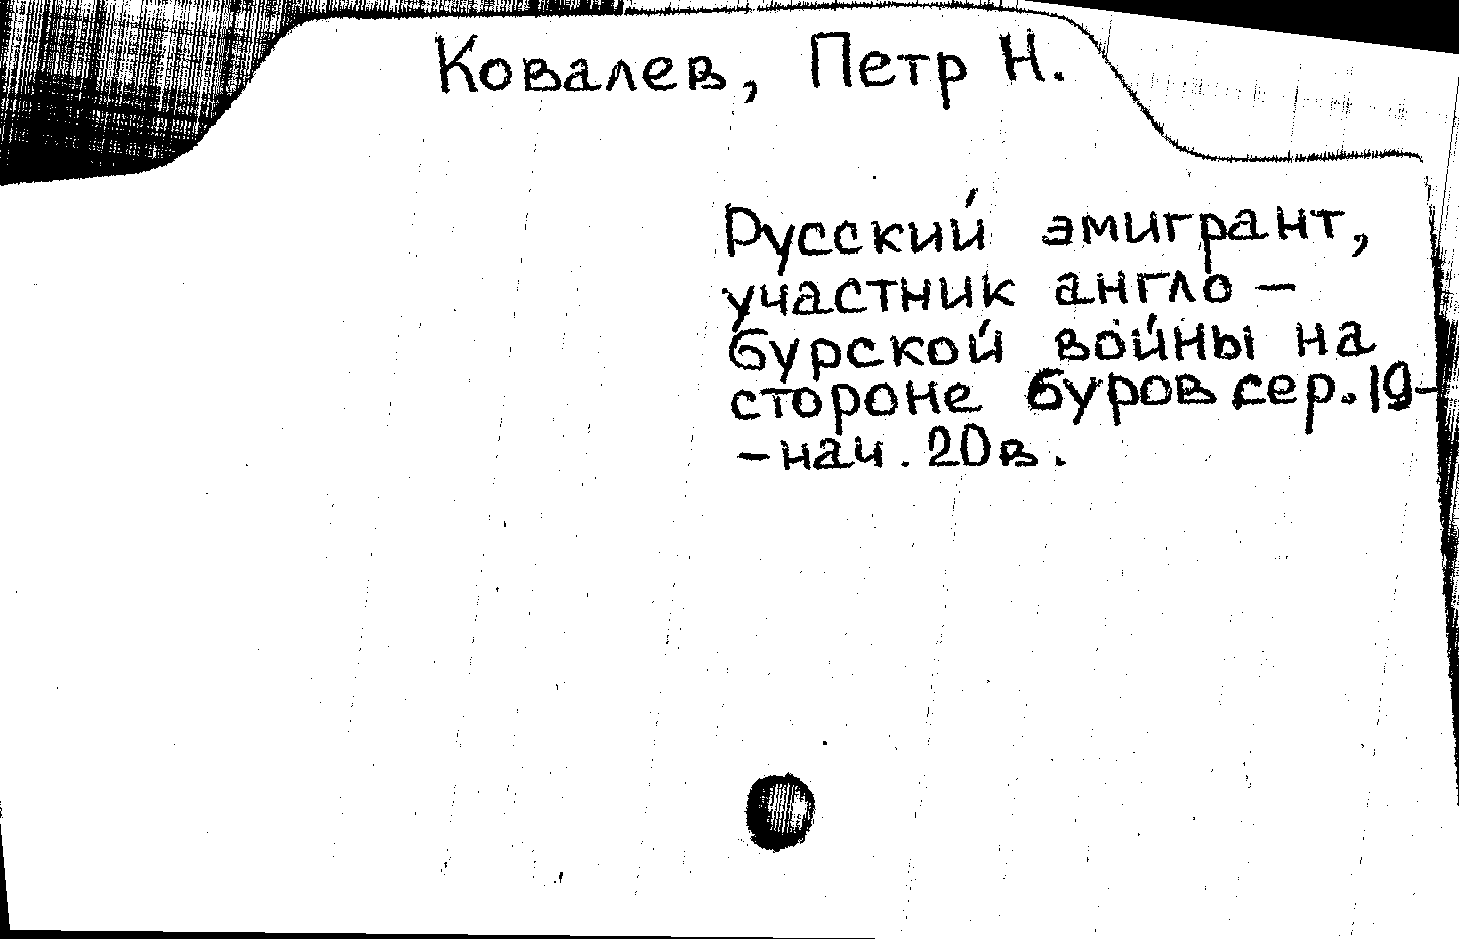 Ковалев, Петр Н.
Русский эмигрант,
участник англо –
бурской войны на
стороне буров сер. 19–
– нач. 20 в.